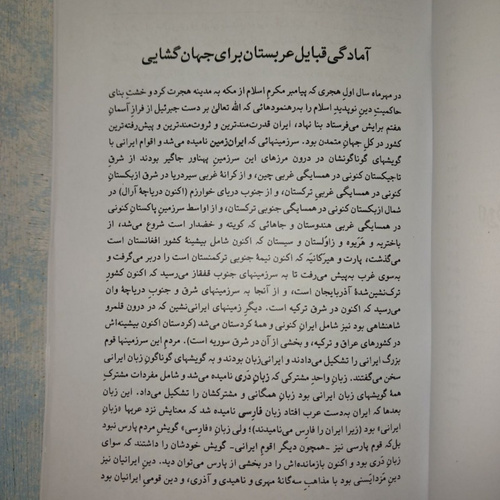 آمادگی قبایل عربستان برای جهان گشایی
در مهرماه سال اول هجری که پیامبر مکرم اسلام از مکه به مدینه هجرت کرد و خشتِ بنای
حاکمیتِ دینِ نوپدیدِ اسلام را به‌رهنمودهائی که الله تعالیٰ بر دست جبرئیل از فرازِ آسمانِ
هفتم برایش می‌فرستاد بنا نهاد، ایران قدرت‌مندترین و ثروت‌مندترین و پیش‌رفته‌ترین
کشور در کل جهانِ متمدن بود. سرزمینهائی که ایران‌زمین نامیده می‌شد و اقوام ایرانی با
گویشهای گوناگونشان در درون مرزهای این سرزمینِ پهناور جاگیر بودند از شرقِ
تاجیکستان کنونی در همسایگی غربی چین، و از کرانهٔ غربی سیردریا در شرق ازبکستانِ
کنونی در همسایگی غربیِ ترکستان، و از جنوب دریای خوارزم (اکنون دریاچهٔ آرال) در
شمال ازبکستان کنونی در همسایگی جنوبی ترکستان، و از اواسط سرزمینِ پاکستانِ کنونی
در همسایگی غربی هندوستان و جاهائی که کویته و خضدار است شروع می‌شد، از
باختریه و هَرَیوه و زاوُلستان و سیستان که اکنون شامل بیشینهٔ کشور افغانستان است
می‌گذشت، پارت و هیرکانیَه که اکنون نیمهٔ جنوبی ترکمنستان است را دربر می‌گرفت و
به‌سوی غرب به‌پیش می‌رفت تا به سرزمینهای جنوب قفقاز می‌رسید که اکنون کشورِ
ترک‌نشین‌شدهٔ آذربایجان است، و از آنجا به سرزمینهای شرق و جنوبِ دریاچهٔ وان
می‌رسید که اکنون در شرق ترکیه است. دیگر زمینهای ایرانی‌نشین که در درون قلمرو
شاهنشاهی بود نیز شامل ایرانِ کنونی و همهٔ کردستان می‌شد (کردستان اکنون بیشینه‌اش
در کشورهای عراق و ترکیه، و بخشی از آن در شرق سوریه است). مردمِ این سرزمینها قومِ
بزرگ ایرانی را تشکیل می‌دادند و ایرانی‌زبان بودند و به گویشهای گوناگونِ زبان ایرانی
سخن می‌گفتند. زبانِ واحدِ مشترکی که زبانِ دَری نامیده می‌شد و شامل مفردات مشترکِ
همهٔ گویشهای زبان ایرانی بود زبان همگانی و مشترکشان را تشکیل می‌داد. این زبان
بعدها که ایران به‌دست عرب افتاد زبان فارسی نامیده شد که معنایش نزد عربها «زبانِ
ایرانی» بود (زیرا ایران را فارس می‌نامیدند)؛ ولی زبانِ «فارسی» گویشِ مردم پارس نبود
بل‌که قوم پارسی نیز -همچون دیگر اقوام ایرانی- گویش خودشان را داشتند که سوای
زبانِ دَری بود و اکنون بازمانده‌اش را در بخشی از پارس می‌توان دید. دینِ ایرانیان نیز
دینِ مَزدایَسنی بود با مذاهبِ سه‌گانهٔ مِهری و ناهیدی و آذری، و دین قومیِ ایرانیان بود